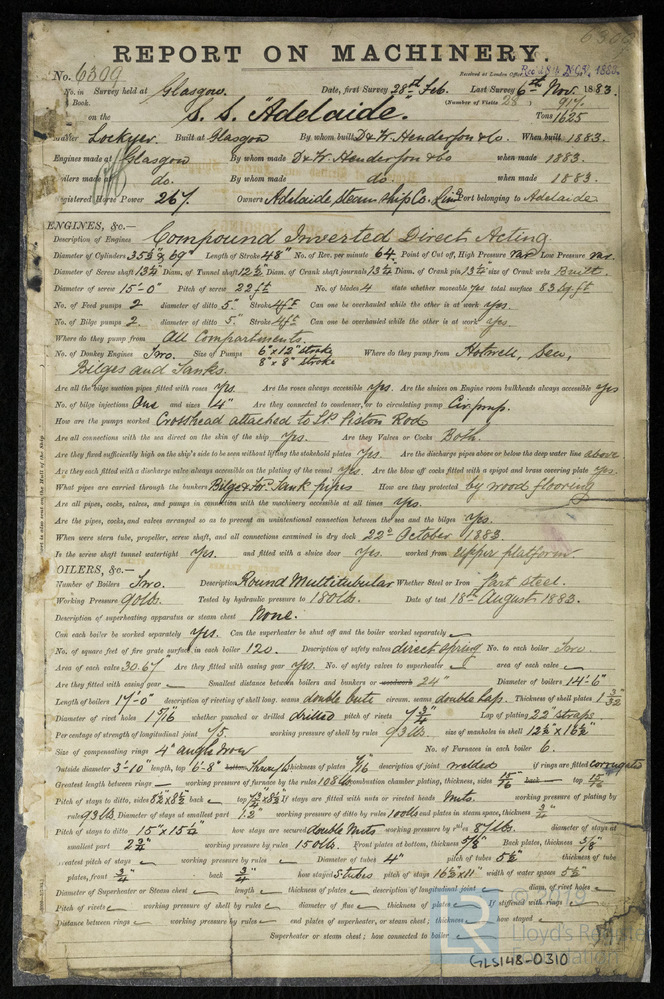 6309
REPORT ON MACHINERY.
No. 6309 Received at London Office Rec'd 8th NOV. 1883.
No. in Survey held at Glasgow. Date, first Survey 28th Feb. Last Survey 6th Nov. 1883.
Book. (Number of Visits 28) 917.
on the S.S. "Adelaide. Tons 1625
Master Lockyer. Built at Glasgow By whom built D & W. Henderson & Co. When built 1883.
Engines made at Glasgow By whom made D & W. Henderson & Co when made 1883.
Boilers made do. By whom made do. when made 1883.
Registered Horse Power 267. Owners Adelaide Steam Ship Co. Limd Port belonging to Adelaide
ENGINES, &c.—
Description of Engines Compound Inverted Direct Acting.
Diameter of Cylinders 35½ & 69" Length of Stroke 48" No. of Rev. per minute 64. Point of Cut off, High Pressure var Low Pressure var.
Diameter of Screw shaft 13½ Diam. of Tunnel shaft 12½ Diam. of Crank shaft journals 13½ Diam. of Crank pin 13½ size of Crank webs Built.
Diameter of screw 15'-0" Pitch of screw 22 ft No. of blades 4 state whether moveable Yes total surface 83 Sq. ft
No. of Feed pumps 2 diameter of ditto 5" Stroke 4 ft Can one be overhauled while the other is at work yes.
No. of Bilge pumps 2. diameter of ditto 5" Stroke 4 ft Can one be overhauled while the other is at work yes.
Where do they pump from All Compartments.
No. of Donkey Engines Two. Size of Pumps 6" x 12" stroke 8" x 8" stroke Where do they pump from Hotwell, Sea,
Bilges and Tanks.
Are all the bilge suction pipes fitted with roses Yes. Are the roses always accessible yes. Are the sluices on Engine room bulkheads always accessible yes
No. of bilge injections One and sizes 4" Are they connected to condenser, or to circulating pump Cir. pump.
How are the pumps worked Crosshead attached to LP Piston Rod
Are all connections with the sea direct on the skin of the ship Yes. Are they Valves or Cocks Both.
Are they fixed sufficiently high on the ship's side to be seen without lifting the stokehold plates Yes. Are the discharge pipes above or below the deep water line above
Are they each fitted with a discharge valve always accessible on the plating of the vessel Yes. Are the blow off cocks fitted with a spigot and brass covering plate Yes.
What pipes are carried through the bunkers Bilge & Wr. Tank pipes How are they protected by wood flooring
Are all pipes, cocks, valves, and pumps in connection with the machinery accessible at all times Yes.
Are the pipes, cocks, and valves arranged so as to prevent an unintentional connection between the sea and the bilges Yes.
When were stern tube, propeller, screw shaft, and all connections examined in dry dock 22d October 1883
Is the screw shaft tunnel watertight Yes and fitted with a sluice door Yes. worked from upper platform
OILERS, &c.—
Number of Boilers Two. Description Round Multitubular Whether Steel or Iron Part steel.
Working Pressure 90 lbs. Tested by hydraulic pressure to 180 lbs. Date of test 18th August 1883.
Description of superheating apparatus or steam chest None.
Can each boiler be worked separately Yes. Can the superheater be shut off and the boiler worked separately
No. of square feet of fire grate surface in each boiler 120. Description of safety valves direct spring No. to each boiler Two.
Area of each valve 30.67" Are they fitted with easing gear Yes. No. of safety valves to superheater area of each valve
Are they fitted with easing gear Smallest distance between boilers and bunkers or woodwork 24" Diameter of boilers 14'-6"
Length of boilers 17'-0" description of riveting of shell long. seams double butt circum. seams double lap. Thickness of shell plates 1 3/32
Diameter of rivet holes 1 5/16 whether punched or drilled drilled pitch of rivets 7¾ Lap of plating 22" straps.
Per centage of strength of longitudinal joint 75. working pressure of shell by rules 93 lbs. size of manholes in shell 12½ x 16½"
Size of compensating rings 4" angle iron No. of Furnaces in each boiler 6.
Outside diameter 3'-10" length, top 6'-8" bottom Through thickness of plates 7/16 description of joint welded if rings are fitted corrugated
Greatest length between rings working pressure of furnace by the rules 108 lbs combustion chamber plating, thickness, sides 15/16 back top 15/16
Pitch of stays to ditto, sides 8½ x 8½ back top If stays are fitted with nuts or riveted heads Nuts. working pressure of plating by
rules 93 lbs Diameter of stays at smallest part 1.2" working pressure of ditto by rules 100 lbs end plates in steam space, thickness ¾"
Pitch of stays to ditto 15" x 15¼" how stays are secured double Nuts working pressure by rules 87 lbs. diameter of stays at
smallest part 2¾" working pressure by rules 150 lbs. Front plates at bottom, thickness 5/8" Back plates, thickness 5/8"
Greatest pitch of stays working pressure by rules Diameter of tubes 4" pitch of tubes 5½" thickness of tube
plates, front ¾" back ¾" how stayed S tubes pitch of stays 16½ x 11" width of water spaces 5½"
Diameter of Superheater or Steam chest length thickness of plates description of longitudinal joint diam. of rivet holes
Pitch of rivets working pressure of shell by rules diameter of flue thickness of plates If stiffened with rings
Distance between rings working pressure by rules end plates of superheater, or steam chest; thickness how stayed
Superheater or steam chest; how connected to boiler
© 2019
Lloyd's Register
Foundation
GLS148-0310